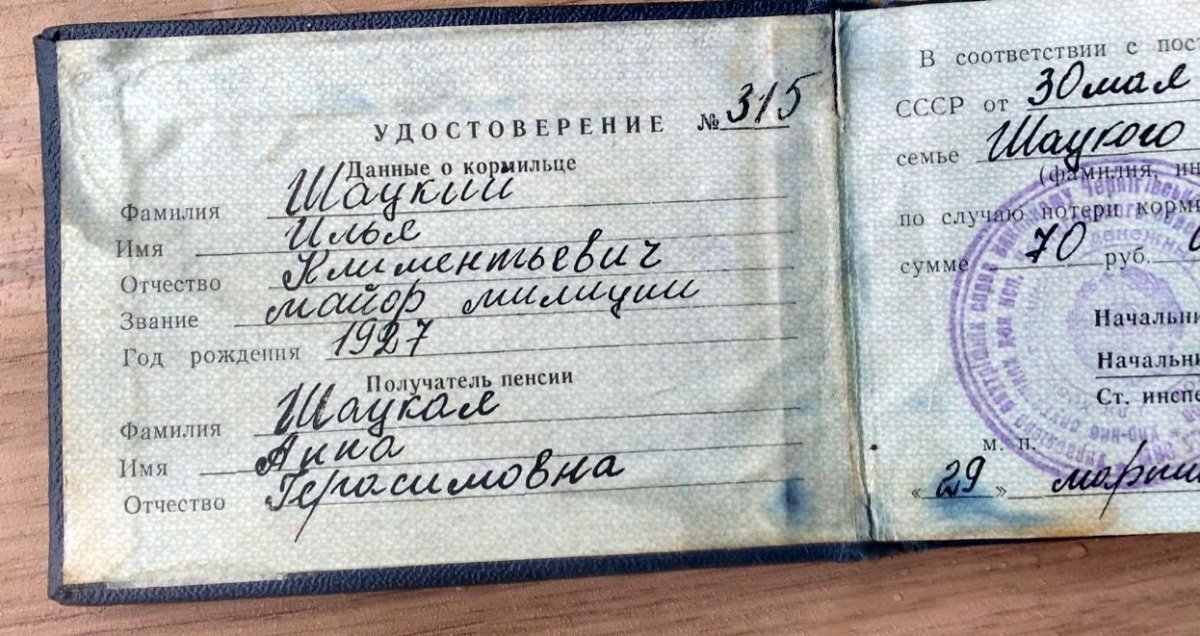 УДОСТОВЕРЕНИЕ № 315
Данные о кормильце
Фамилия Шацкий
Имя Илья
Отчество Климентьевич
Звание майор милиции
Год рождения 1927
Получатель пенсии
Фамилия Шацкая
Имя Анна
Отчество Герасимовна
В соответствии с пост
СССР от 30 мая
семье Шацкого
(фамилия, ин
по случаю потери корм
сумме 70 руб.
Начальни
Начальни
Ст. инспе
м. п.
« 29 » марта